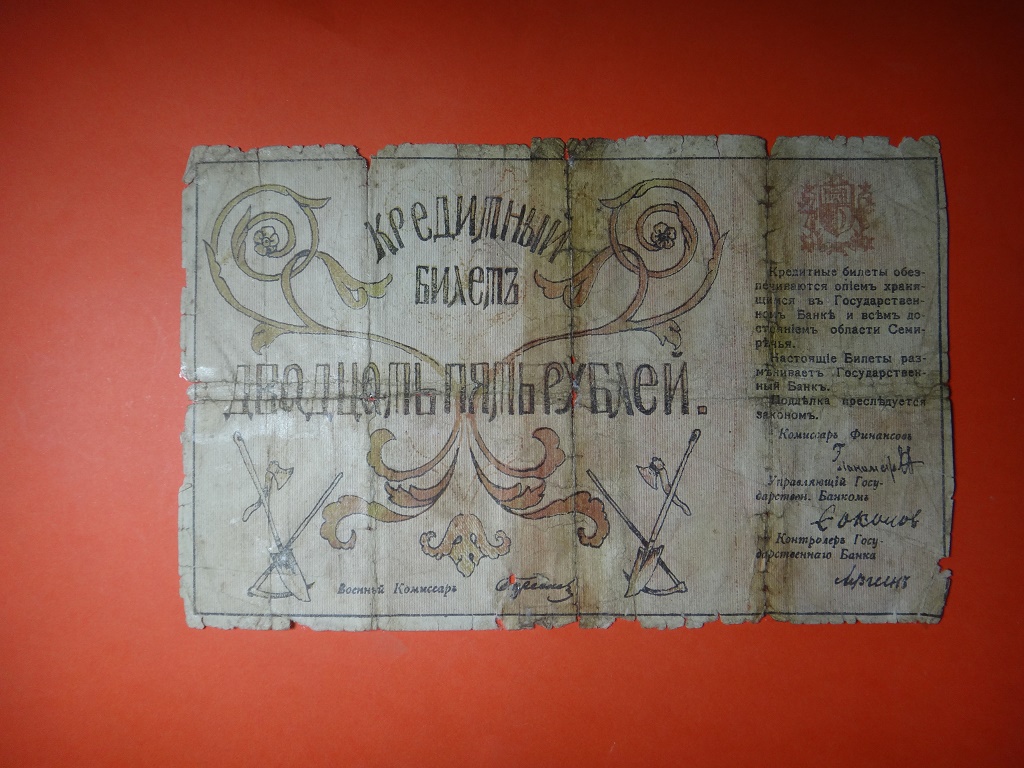 КРЕДИТНЫЙ
БИЛЕТЪ
ДВАДЦАТЬ ПЯТЬ РУБЛЕЙ.
Военный Комиссаръ
Кредитные билеты обез-
печиваются опіемъ храня-
щимся въ Государствен-
номъ Банкѣ и всѣмъ до-
стояніемъ области Семи-
рѣчья.
Настоящіе Билеты раз-
мѣниваетъ Государствен-
ный Банкъ.
Поддѣлка преслѣдуется
закономъ.
Комиссаръ Финансовъ
Управляющій Госу-
дарствен. Банкомъ
Соколов
Контролеръ Госу-
дарственнаго Банка